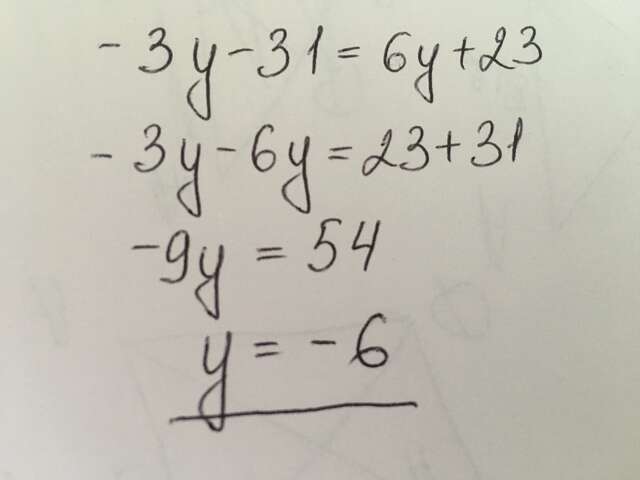 -3y-31=6y+23
-3y-6y=23+31
-9y=54
y=-6